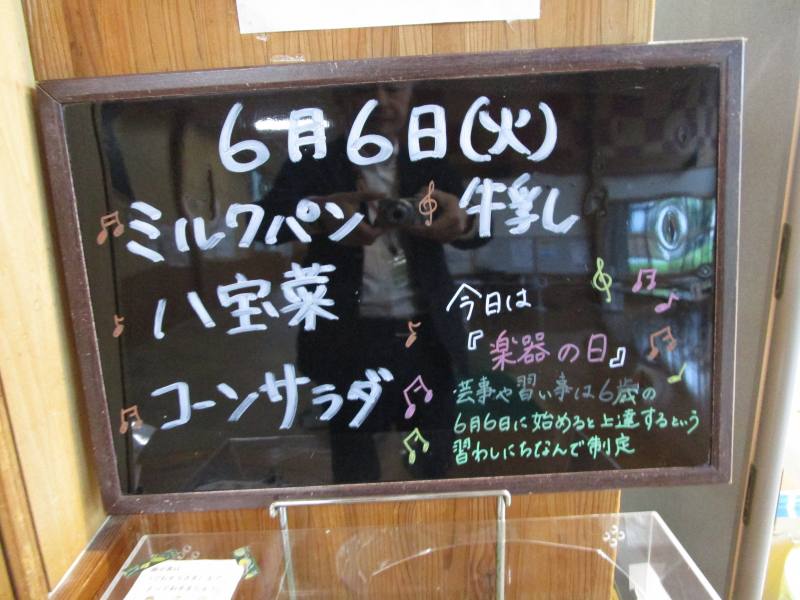 6月6日(火)
ミルクパン 牛乳
八宝菜
コーンサラダ
今日は
『楽器の日』
芸事や習い事は6歳の
6月6日に始めると上達するという
習わしにちなんで制定